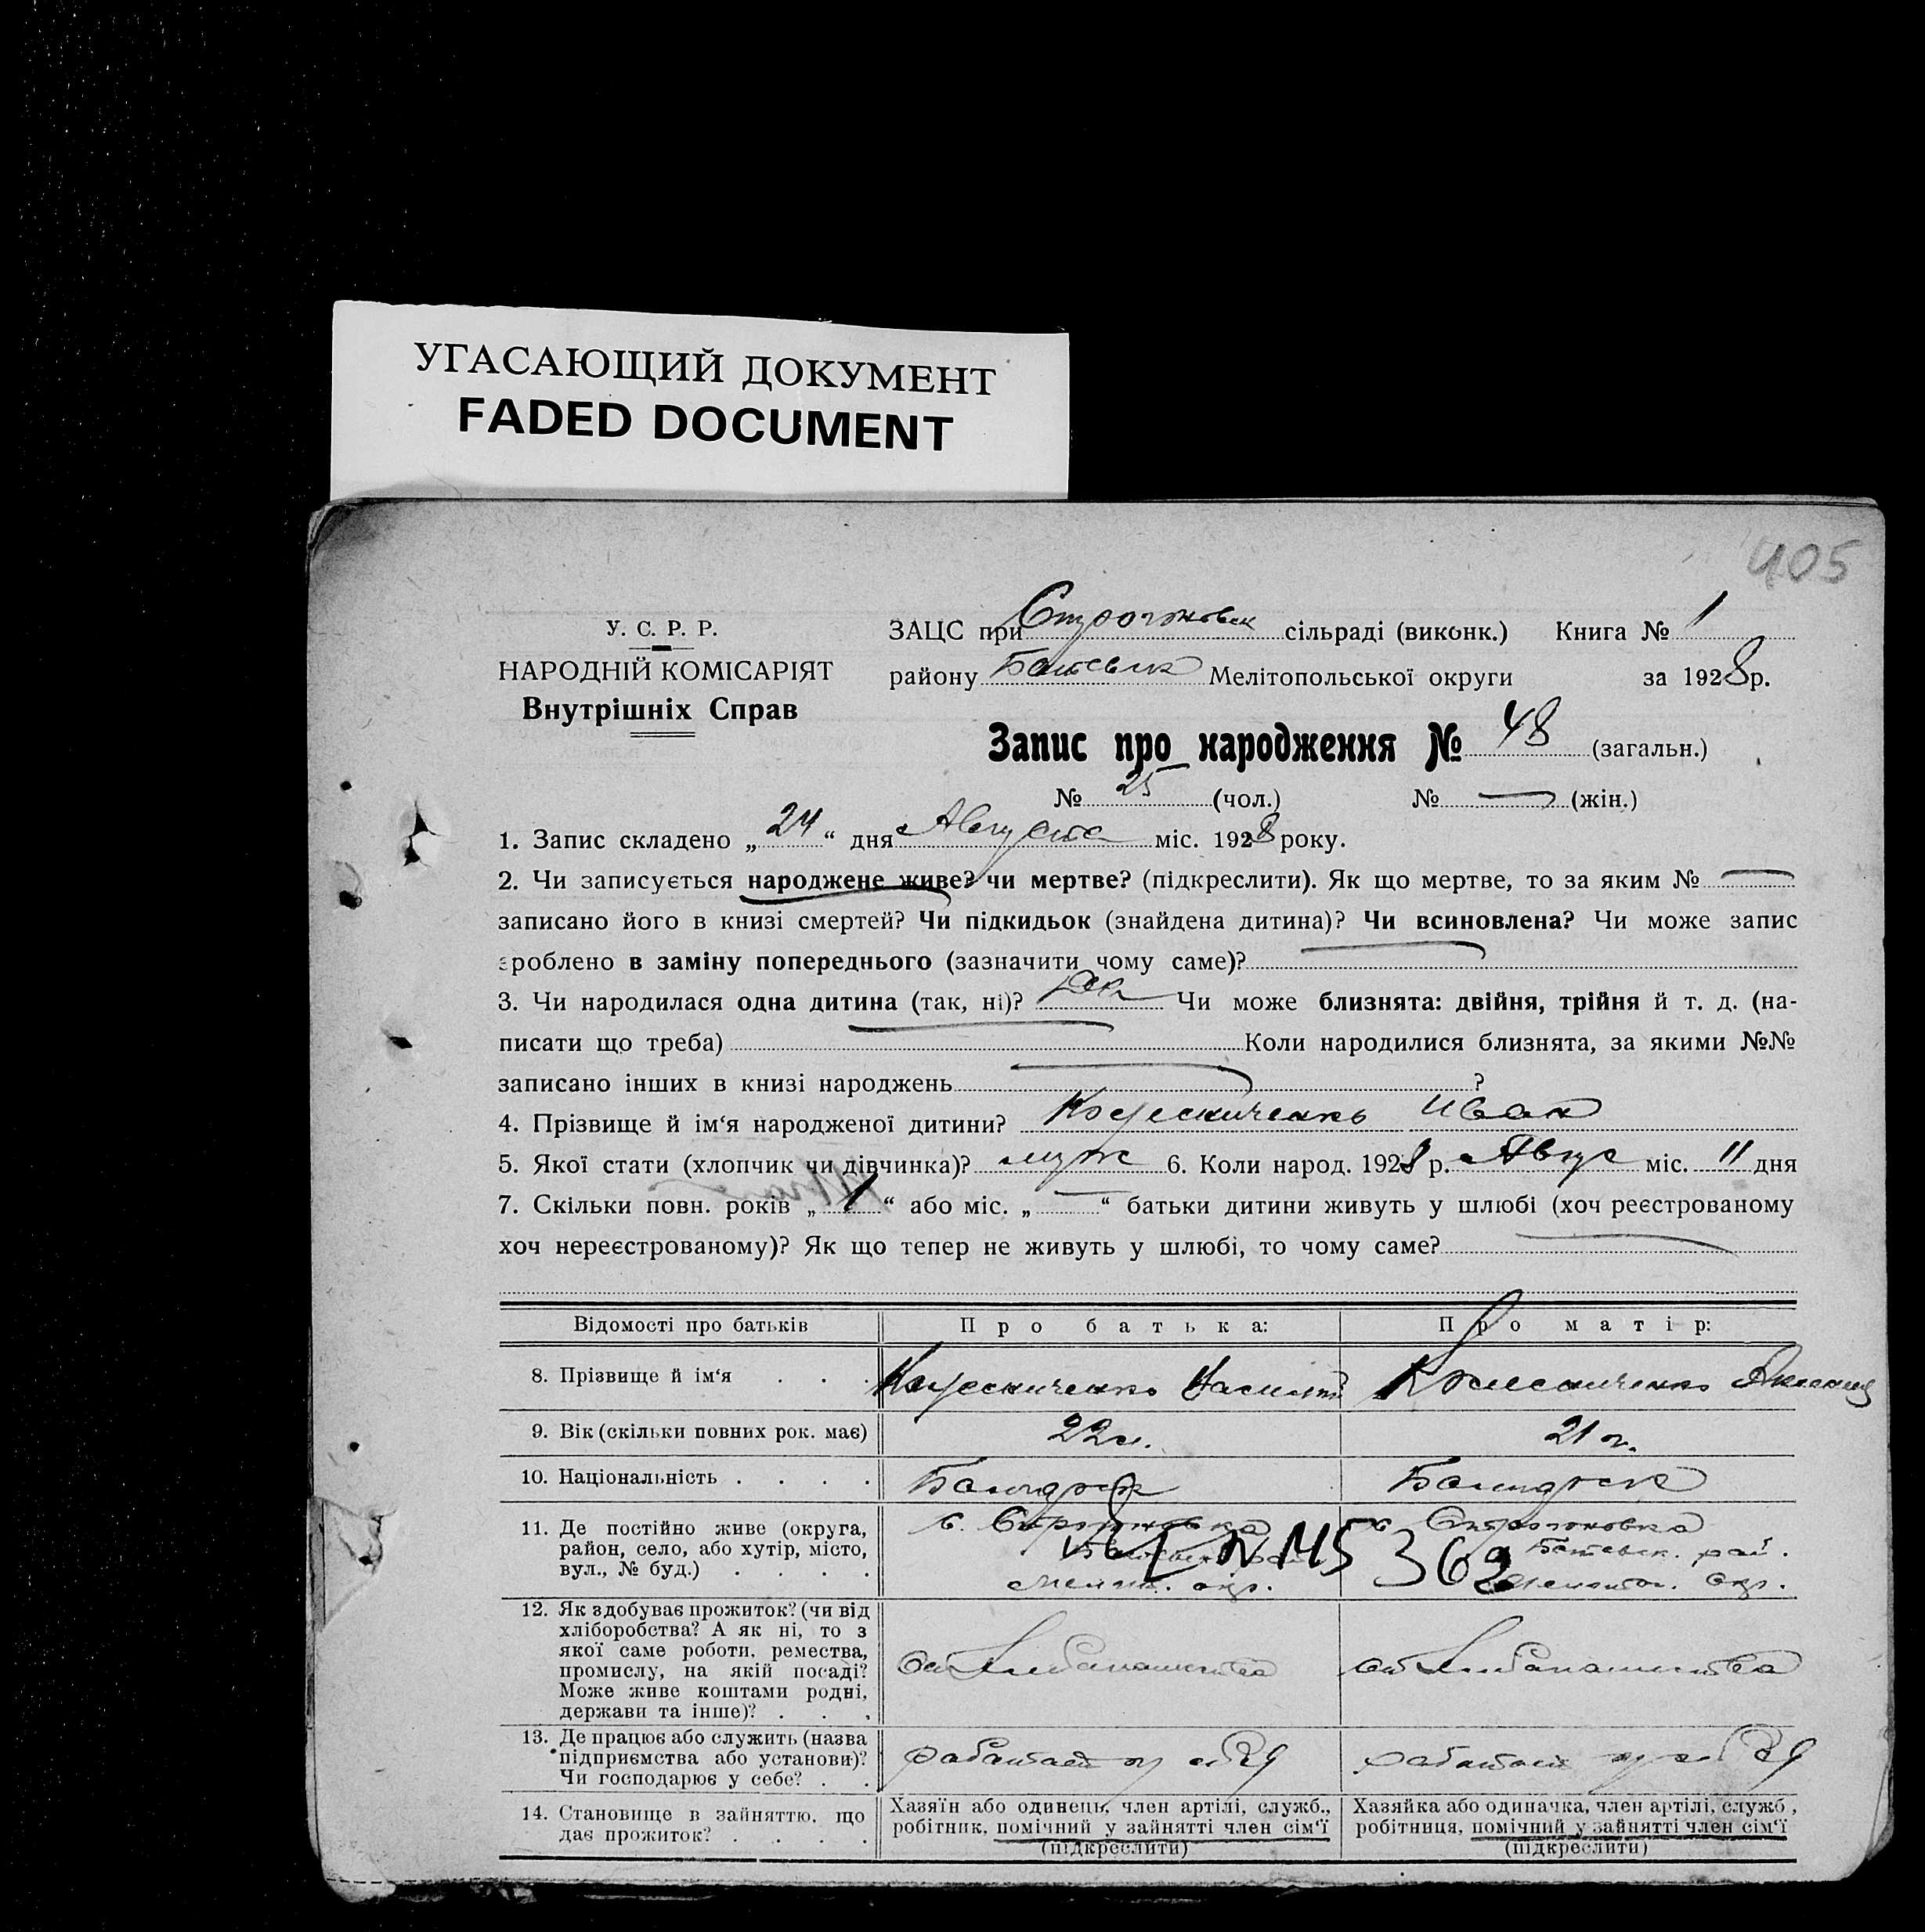 УГАСАЮЩИЙ ДОКУМЕНТ
FADED DOCUMENT
405
У. С. Р. Р.
НАРОДНІЙ КОМІСАРІЯТ
Внутрішніх Справ
ЗАЦС при Строгоновск сільраді (виконк.) Книга № 1
району Мелітопольської округи за 1928 р.
Запис про народження № 48 (загальн.)
№ 25 (чол.) № — (жін.)
1. Запис складено „24“ дня Августа міс. 1928 року.
2. Чи записується народжене живе? чи мертве? (підкреслити). Як що мертве, то за яким № —
записано його в книзі смертей? Чи підкидьок (знайдена дитина)? Чи всиновлена? Чи може запис
зроблено в заміну попереднього (зазначити чому саме)?
3. Чи народилася одна дитина (так, ні)? Чи може близнята: двійня, трійня й т. д. (на-
писати що треба) Коли народилися близнята, за якими №№
записано інших в книзі народжень ?
4. Прізвище й ім‘я народженої дитини? Колесниченко Иван
5. Якої стати (хлопчик чи дівчинка)? муж 6. Коли народ. 1928 р. Авгус міс. 11 дня
7. Скільки повн. років „1“ або міс. „—“ батьки дитини живуть у шлюбі (хоч реєстрованому
хоч нереєстрованому)? Як що тепер не живуть у шлюбі, то чому саме?
Відомості про батьків Про батька: Про матір:
8. Прізвище й ім‘я . . . Колесниченко Колесниченко
9. Вік (скільки повних рок. має) 22 21
10. Національність . . . .
11. Де постійно живе (округа,
район, село, або хутір, місто,
вул., № буд.) . . . .
с. Строгоновка
Мелит. окр.
с. Строгоновка
рай.
окр.
145 369
12. Як здобуває прожиток? (чи від
хліборобства? А як ні, то з
якої саме роботи, ремества,
промислу, на якій посаді?
Може живе коштами родні,
держави та інше)? . . .
От хлебопашества От хлебопашества
13. Де працює або служить (назва
підприємства або установи)?
Чи господарює у себе? . .
работает у работает у
14. Становище в зайняттю, що
дає прожиток? . . . .
Хазяїн або одинець, член артілі, служб.,
робітник, помічний у зайнятті член сім‘ї
(підкреслити)
Хазяйка або одиначка, член артілі, служб.,
робітниця, помічний у зайнятті член сім‘ї
(підкреслити)